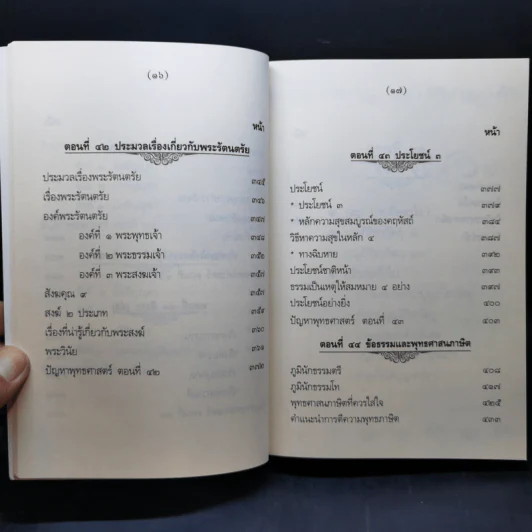 (๑๖)
หน้า
ตอนที่ ๔๒ ประมวลเรื่องเกี่ยวกับพระรัตนตรัย
ประมวลเรื่องพระรัตนตรัย ๓๔๕
เรื่องพระรัตนตรัย ๓๔๖
องค์พระรัตนตรัย ๓๔๗
องค์ที่ ๑ พระพุทธเจ้า ๓๔๘
องค์ที่ ๒ พระธรรมเจ้า
องค์ที่ ๓ พระสงฆเจ้า ๓๕๗
สังฆคุณ ๙ ๓๕๗
สงฆ์ ๒ ประเภท ๓๕๙
เรื่องที่น่ารู้เกี่ยวกับพระสงฆ์ ๓๖๐
พระวินัย ๓๖๑
ปัญหาพุทธศาสตร์ ตอนที่ ๔๒ ๓๗๒
(๑๗)
หน้า
ตอนที่ ๔๓ ประโยชน์ ๓
ประโยชน์ ๓๗๗
* ประโยชน์ ๓ ๓๗๙
* หลักความสุขสมบูรณ์ของคฤหัสถ์ ๓๘๔
วิธีหาความสุขในหลัก ๔ ๓๘๗
* ทางฉิบหาย ๓๙๒
ประโยชน์ชาติหน้า ๓๙๓
ธรรมเป็นเหตุให้สมหมาย ๔ อย่าง ๓๙๗
ประโยชน์อย่างยิ่ง ๔๐๐
ปัญหาพุทธศาสตร์ ตอนที่ ๔๓ ๔๐๓
ตอนที่ ๔๔ ข้อธรรมและพุทธศาสนภาษิต
ภูมินักธรรมตรี ๔๐๘
ภูมินักธรรมโท ๔๑๗
พุทธศาสนภาษิตที่ควรใส่ใจ ๔๒๕
คำแนะนำการตีความพุทธภาษิต ๔๓๓